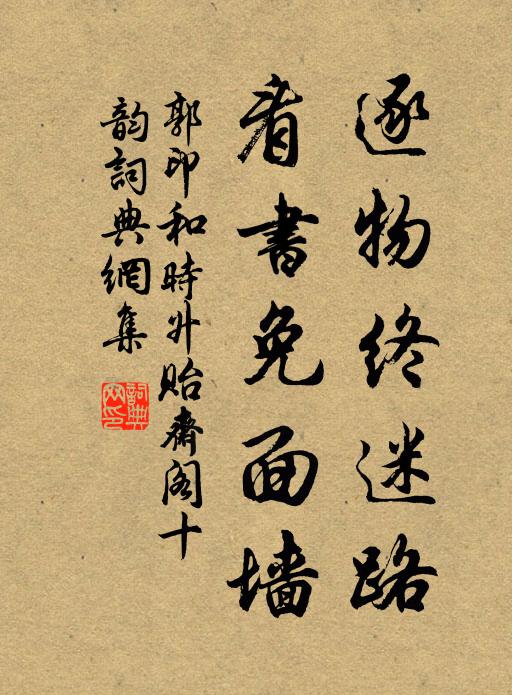 逐物终迷路
看书免面墙
郭印和時升贻齋阁十
韵詞典網集
詞典網印